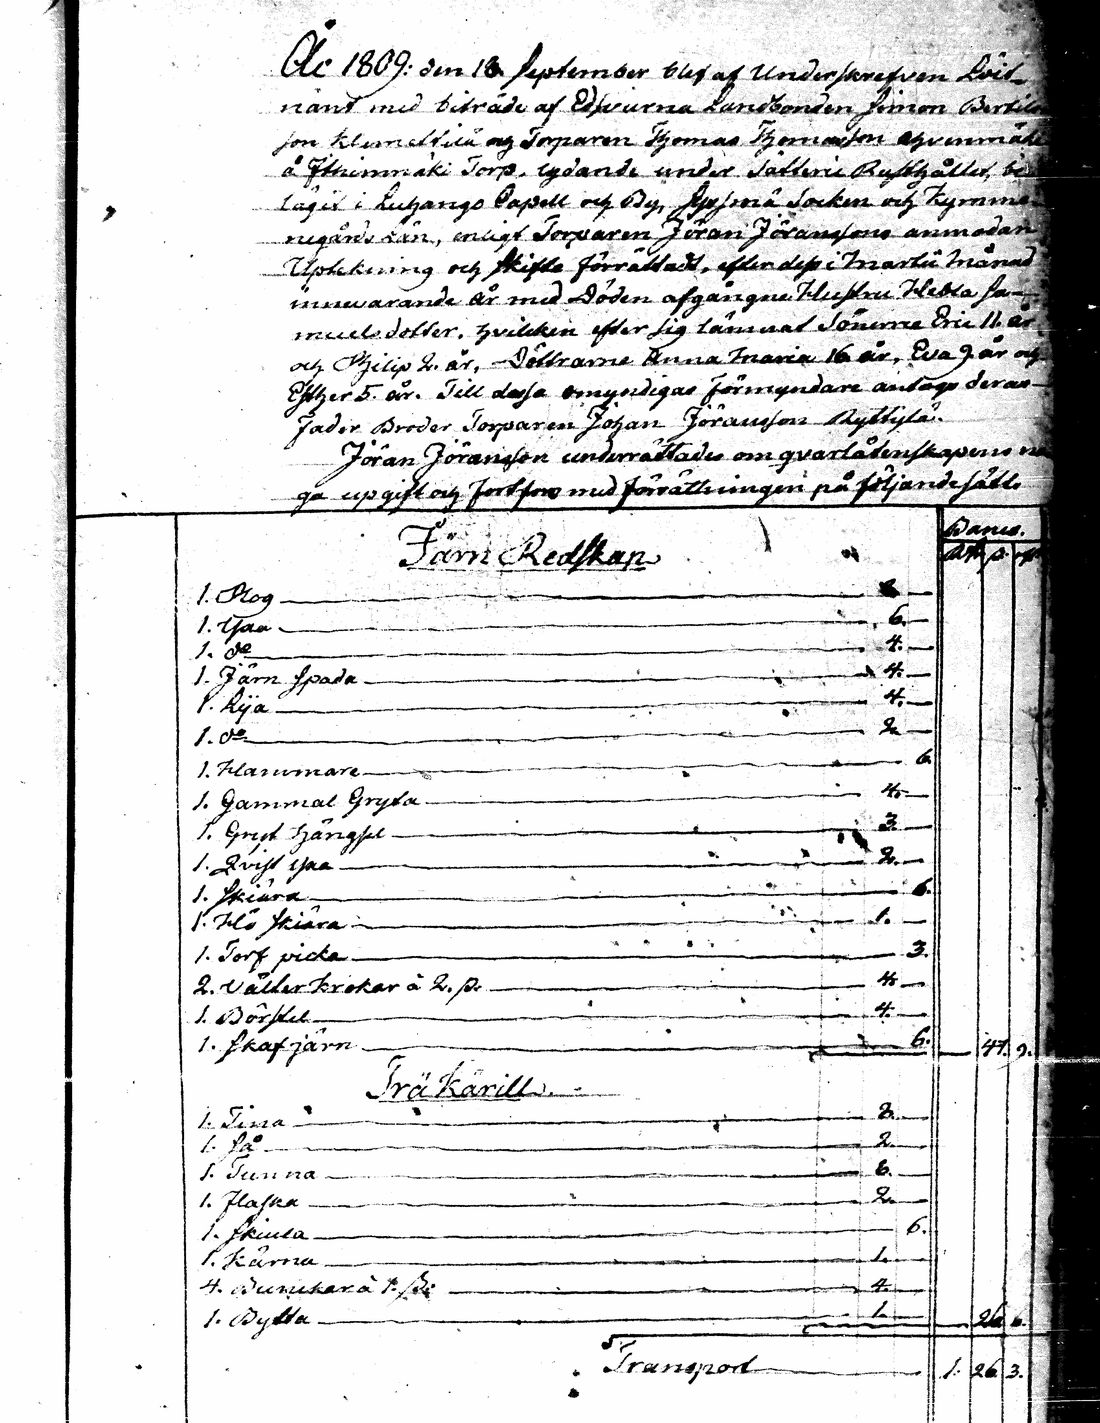 År 1809: den 18 September blef af Underskrefven Löit-
nant med biträde af Edsvurna Landbonden Simon Bertils
son Klemettilä och Torparen Thomas Thomasson
å Torp, lydande under Sätteri Rusthållet, be
läget i Luhango Capell och By, Sysmä Socken och Kymme-
negårds Län, enligt Torparen Jöran Jöransons anmodan
Uptekning och Skifte förrättadt, efter dess i Martii Månad
innevarande år med Döden afgångne Hustru Hedda Sa-
muelsdotter, hvilcken efter sig lämnat Sönerne Eric 11. år
och Philip 2. år, Döttrarne Anna Maria 16 år, Eva 9. år och
Esther 5. år. Till dessa omyndigas Förmyndare antogs deras
Fader Broder Torparen Johan Jöransson Ryttylä.
Jöran Jöransson underrättades om qvarlåtenskapens no
ga upgift och fortfors med förrättningen på följande sätt.
Banco.
Järn Redskap Rd ß rst
1. Plog 8.
1. Yxa 6.
1. do 4.
1. Järn Spada 4.
1. Lija 4.
1. do 2.
1. Hammare 6.
1. Gammal Gryta 4.
1. Gryt hängsel 3.
1. Qvist yxa 2.
1. Skiära 6.
1. Hö Skiära 1.
1. Torf picka 3.
2. Vällar krokar à 2. ß. 4.
1. Börstel 4.
1. Skafjärn 6. 47. 9.
Trä Kärill.
1. Tina 8.
1. Så 2.
1. Tunna 6.
1. Flaska 2.
1. Skiula 6.
1. Kärna 1.
4. Bunckar à 1. ß: 4.
1. Bytta 1. 26. 6.
Transport 1. 26. 3.